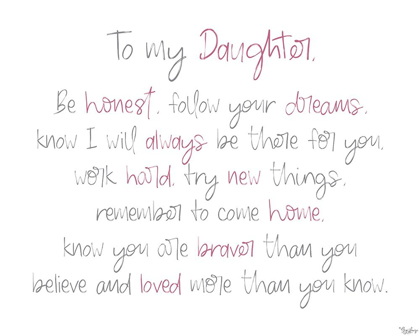 To my Daughter,
Be honest, follow your dreams,
know I will always be there for you,
work hard, try new things,
remember to come home,
know you are braver than you
believe and loved more than you know.